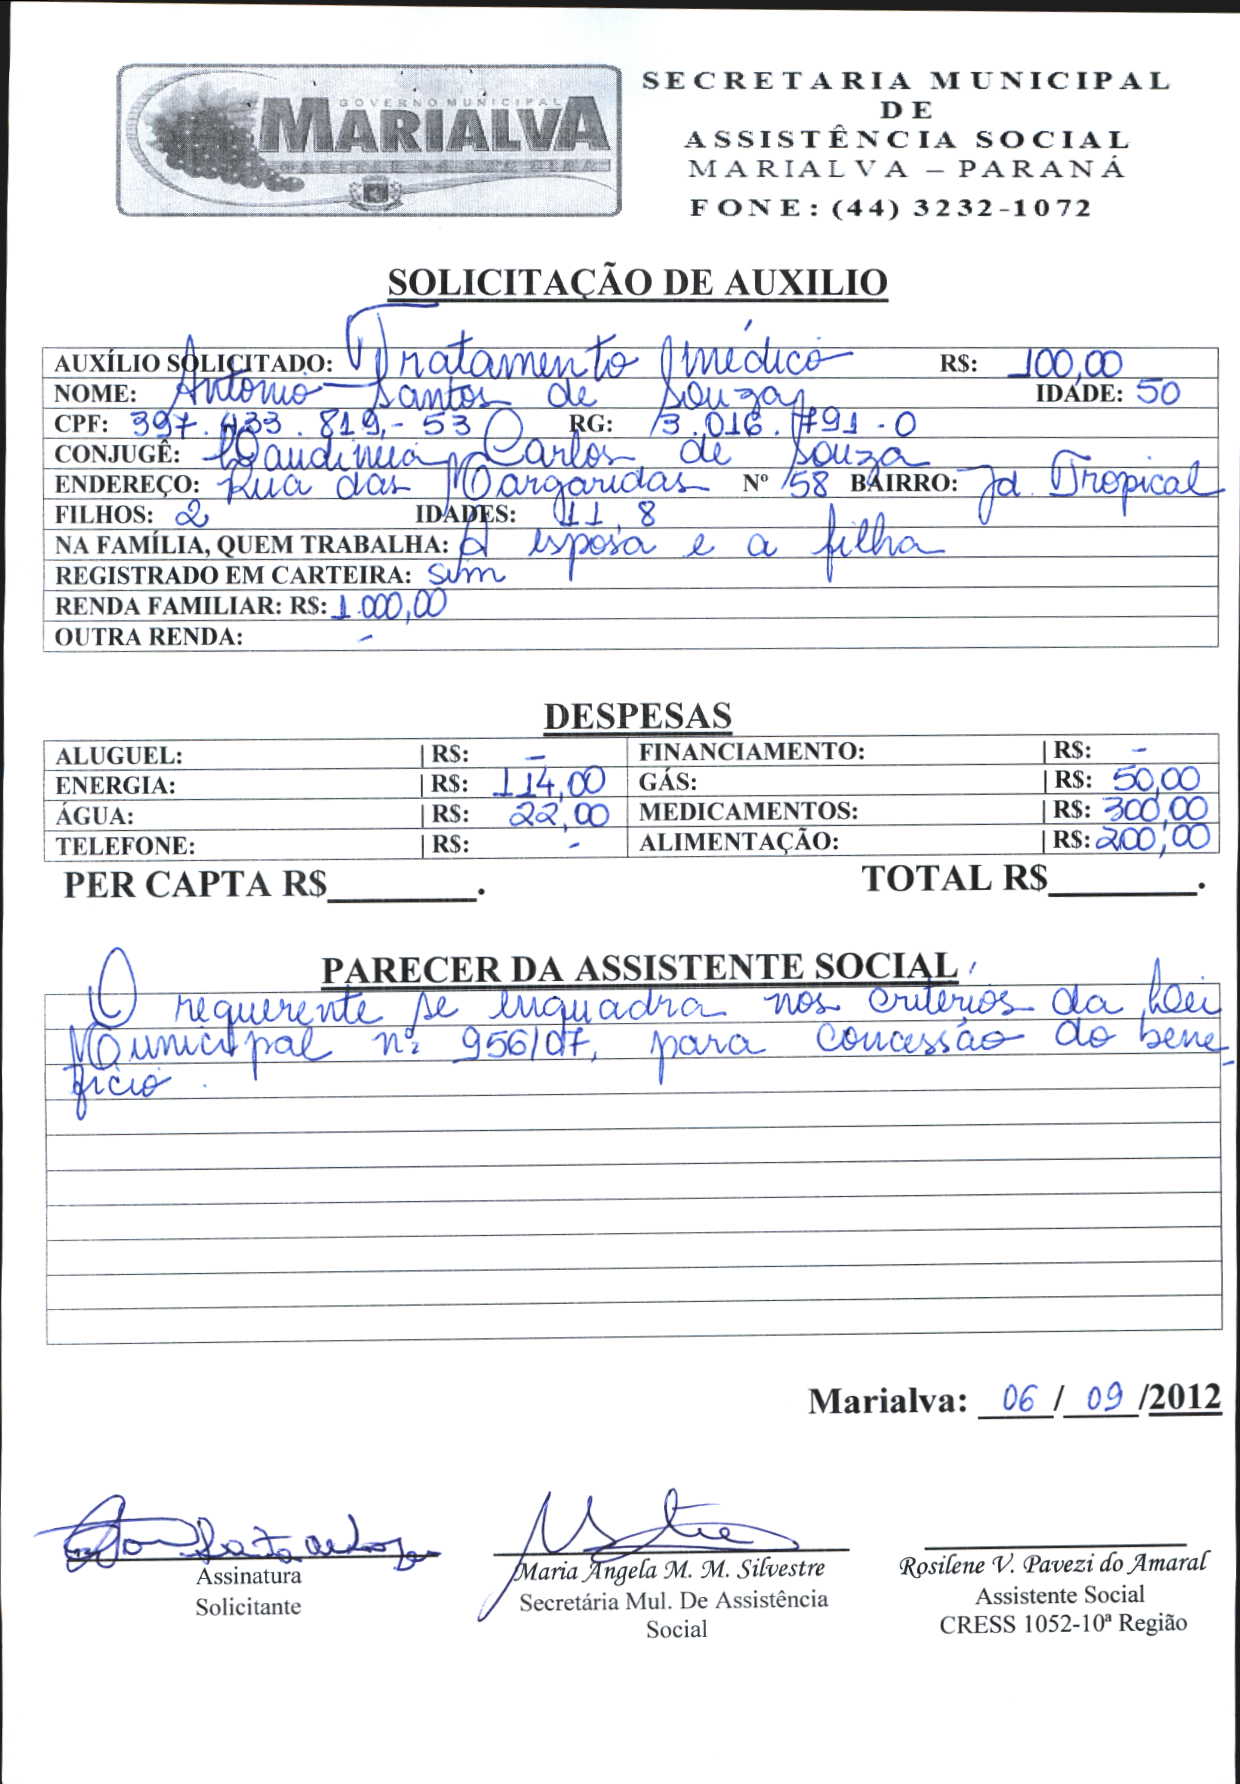 GOVERNO MUNICIPAL
MARIALVA
SECRETARIA MUNICIPAL
DE
ASSISTÊNCIA SOCIAL
MARIALVA – PARANÁ
FONE: (44) 3232-1072
SOLICITAÇÃO DE AUXILIO
AUXÍLIO SOLICITADO: Tratamento médico R$: 100,00
NOME: Antonio Santos de Souza IDADE: 50
CPF: 397.433.819-53 RG: 3.016.791-0
CONJUGÊ: Claudineia Carlos de Souza
ENDEREÇO: Rua das Margaridas Nº 58 BAIRRO: Jd. Tropical
FILHOS: 2 IDADES: 11, 8
NA FAMÍLIA, QUEM TRABALHA: A esposa e a filha
REGISTRADO EM CARTEIRA: Sim
RENDA FAMILIAR: R$: 1.000,00
OUTRA RENDA: -
DESPESAS
ALUGUEL: | R$: - FINANCIAMENTO: | R$: -
ENERGIA: | R$: 114,00 GÁS: | R$: 50,00
ÁGUA: | R$: 22,00 MEDICAMENTOS: | R$: 300,00
TELEFONE: | R$: - ALIMENTAÇÃO: | R$: 200,00
PER CAPTA R$_______. TOTAL R$_______.
PARECER DA ASSISTENTE SOCIAL
O requerente se enquadra nos critérios da Lei
Municipal nº 956/07, para concessão do bene-
fício.
Marialva: 06 / 09 /2012
Assinatura
Solicitante
Maria Ângela M. M. Silvestre
Secretária Mul. De Assistência
Social
Rosilene V. Pavezi do Amaral
Assistente Social
CRESS 1052-10ª Região